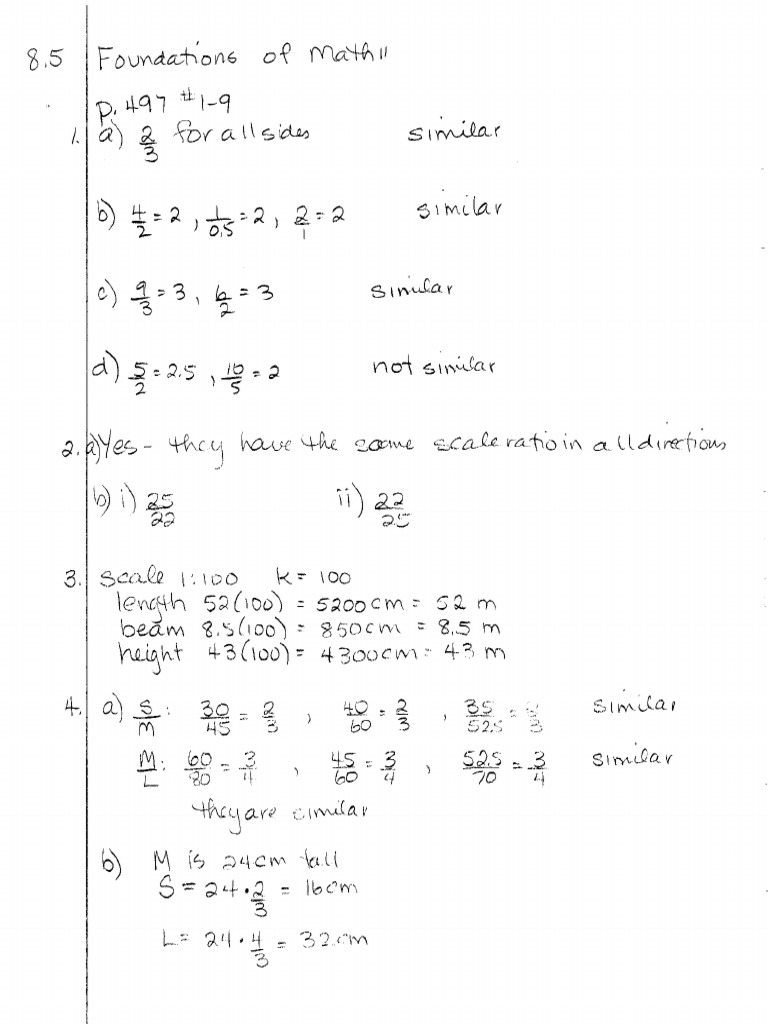 8.5 Foundations of Math 11
p. 497 #1-9
1. a) 2/3 for all sides similar
b) 4/2 = 2, 1/0.5 = 2, 2/1 = 2 similar
c) 9/3 = 3, 6/2 = 3 similar
d) 5/2 = 2.5, 10/5 = 2 not similar
2. a) Yes - they have the same scale ratio in all directions
b) i) 25/22 ii) 22/25
3. scale 1:100 k = 100
length 52(100) = 5200 cm = 52 m
beam 8.5(100) = 850 cm = 8.5 m
height 43(100) = 4300 cm = 43 m
4. a) S/M: 30/45 = 2/3, 40/60 = 2/3, 35/52.5 = 2/3 similar
M/L: 60/80 = 3/4, 45/60 = 3/4, 52.5/70 = 3/4 similar
they are similar
b) M is 24cm tall
S = 24 · 2/3 = 16cm
L = 24 · 4/3 = 32cm